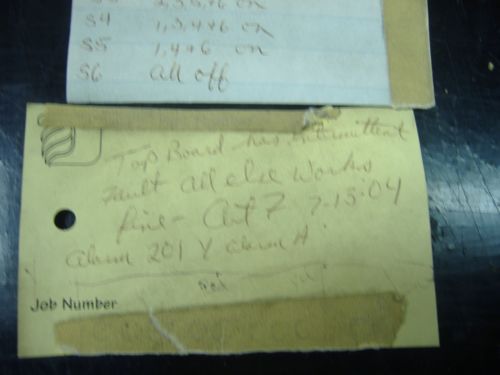 S4 1,3,4+6 on
S5 1,4+6 on
S6 all off
Top Board has intermittent
fault all else works
fine - 7-15-04
alarm 201 Y alarm A
Job Number